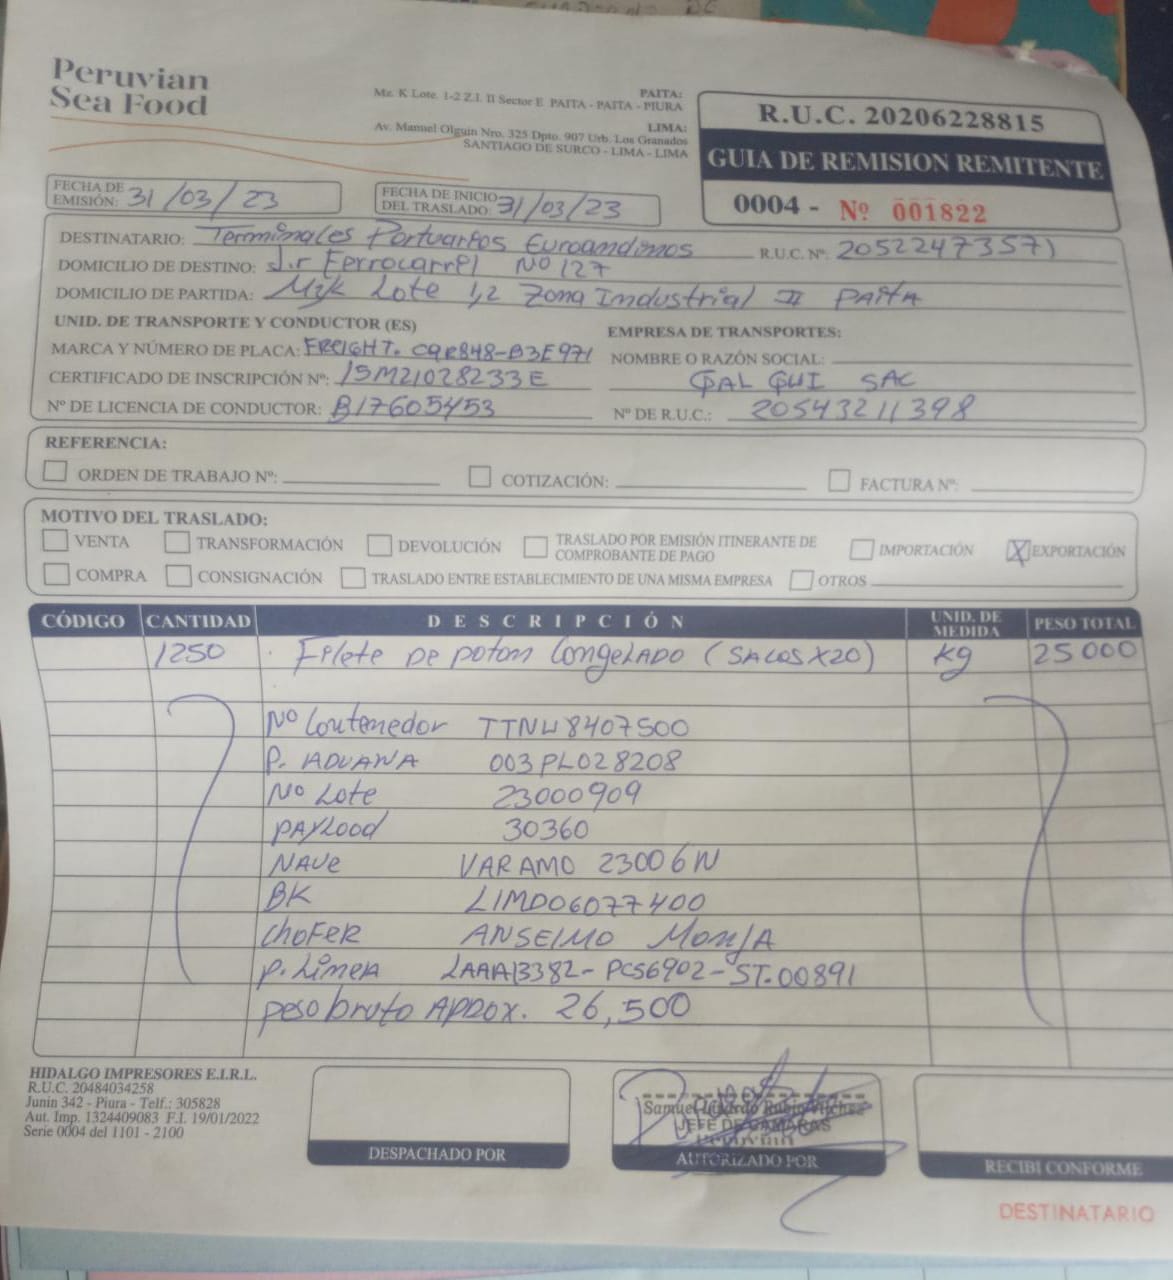 Peruvian
Sea Food
PAITA:
Mz. K Lote. 1-2 Z.I. II Sector E PAITA - PAITA - PIURA
LIMA:
Av. Manuel Olguin Nro. 325 Dpto. 907 Urb. Los Granados
SANTIAGO DE SURCO - LIMA - LIMA
R.U.C. 20206228815
GUIA DE REMISION REMITENTE
0004 - Nº 001822
FECHA DE EMISIÓN: 31/03/23
FECHA DE INICIO DEL TRASLADO: 31/03/23
DESTINATARIO: Terminales Portuarios Euroandinos R.U.C. Nº: 20522473571
DOMICILIO DE DESTINO: J.r Ferrocarrel Nº 127
DOMICILIO DE PARTIDA: Mzk Lote 1,2 Zona Industrial II PAITA
UNID. DE TRANSPORTE Y CONDUCTOR (ES)
EMPRESA DE TRANSPORTES:
MARCA Y NÚMERO DE PLACA: FREIGHT. CQR848-B3E971
NOMBRE O RAZÓN SOCIAL:
CERTIFICADO DE INSCRIPCIÓN Nº: 15M21028233E
QAL QUI SAC
Nº DE LICENCIA DE CONDUCTOR: B17605453
Nº DE R.U.C.: 20543211398
REFERENCIA:
ORDEN DE TRABAJO Nº: COTIZACIÓN: FACTURA Nº:
MOTIVO DEL TRASLADO:
VENTA TRANSFORMACIÓN DEVOLUCIÓN TRASLADO POR EMISIÓN ITINERANTE DE COMPROBANTE DE PAGO IMPORTACIÓN X EXPORTACIÓN
COMPRA CONSIGNACIÓN TRASLADO ENTRE ESTABLECIMIENTO DE UNA MISMA EMPRESA OTROS
CÓDIGO CANTIDAD DESCRIPCIÓN UNID. DE MEDIDA PESO TOTAL
1250 Filete DE poton CongeLADO (SACOS X20) Kg 25000
Nº Contenedor TTNU8407500
P. ADUANA 003PL028208
Nº Lote 23000909
PAYLOOD 30360
NAVE VARAMO 23006N
BK LIMD06077400
CHOFER ANSELMO MonJA
P. Linea LAAA13382-PCS6902-ST.00891
peso bruto APROX. 26,500
HIDALGO IMPRESORES E.I.R.L.
R.U.C. 20484034258
Junin 342 - Piura - Telf.: 305828
Aut. Imp. 1324409083 F.I. 19/01/2022
Serie 0004 del 1101 - 2100
Samuel
JEFE DE CAMARAS
DESPACHADO POR
AUTORIZADO POR
RECIBI CONFORME
DESTINATARIO